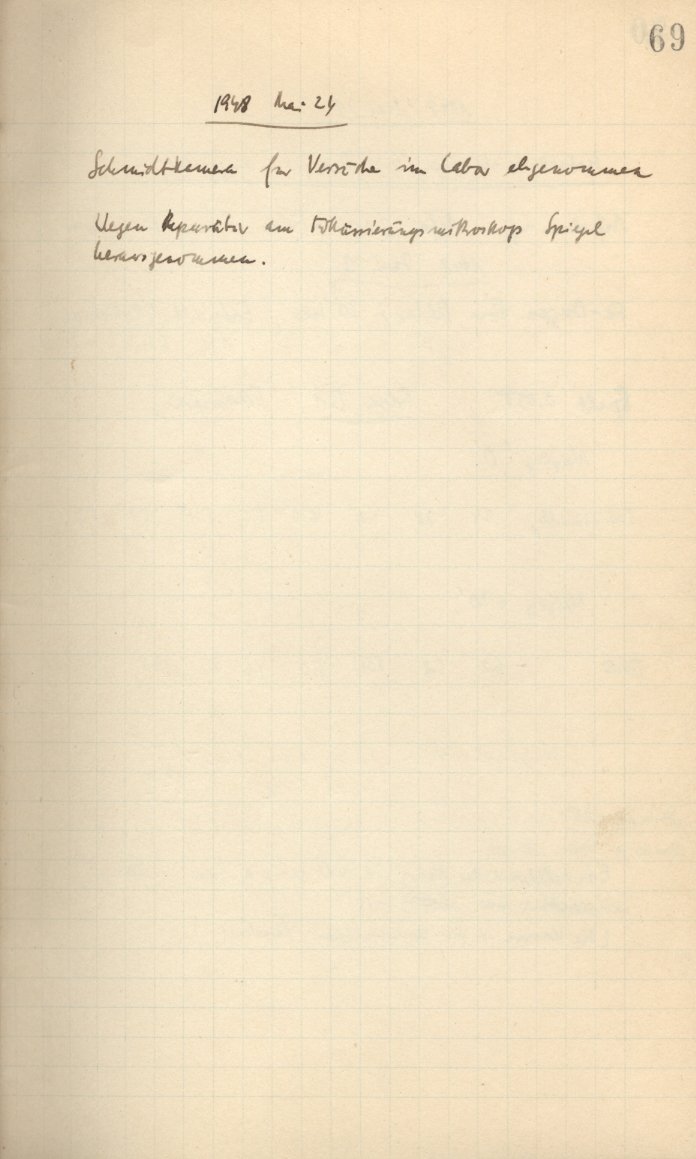 69
1948 Mai 24
Schmidtkamera für Versuche im Labor abgenommen
Wegen Reparatur am Fokussierungsmikroskop Spiegel
herausgenommen.